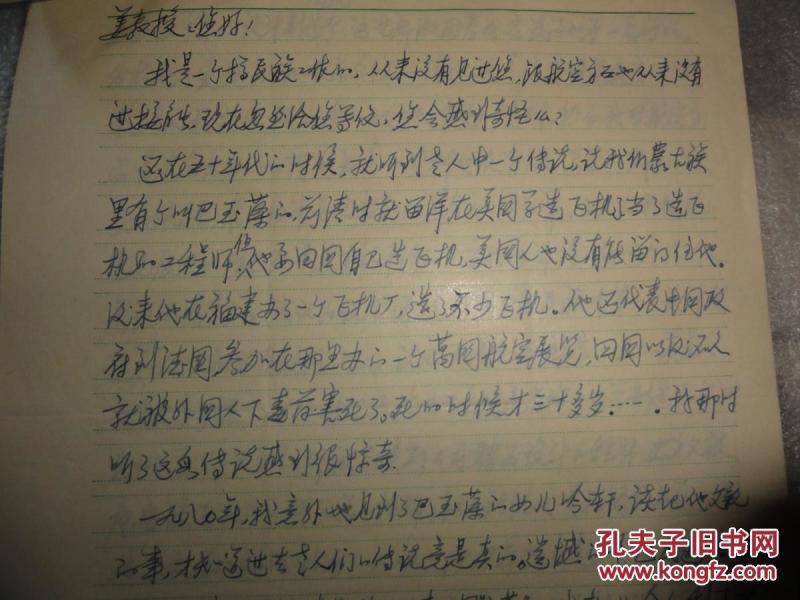 姜教授：您好！
我是一个搞民族工作的，从来没有见过您，跟航空方面也从来没有
进接触，现在忽然给您写信，您会感到奇怪么？
还在五十年代的时候，就听到老人中一个传说，说我们蒙古族
里有个叫巴玉藻的，前清时就留洋在美国学造飞机，当了造飞
机的工程师，但他要回国自己造飞机，美国人也没有能留的住他。
后来他在福建办了一个飞机厂，造了不少飞机。他还代表中国政
府到法国参加在那里办的一个万国航空展览，回国以后不久
就被外国人下毒药害死了。死的时候才三十多岁……。我那时
听了这段传说感到很惊奇。
一九八〇年，我意外地见到了巴玉藻的女儿吟轩，谈起他父亲
的事，才知道过去老人们的传说竟是真的。遗憾
孔夫子旧书网
www.kongfz.com